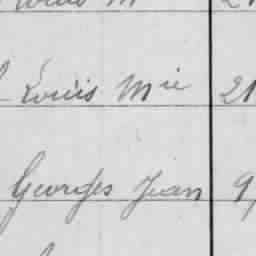 Louis Mie 21
Georges Jean 9